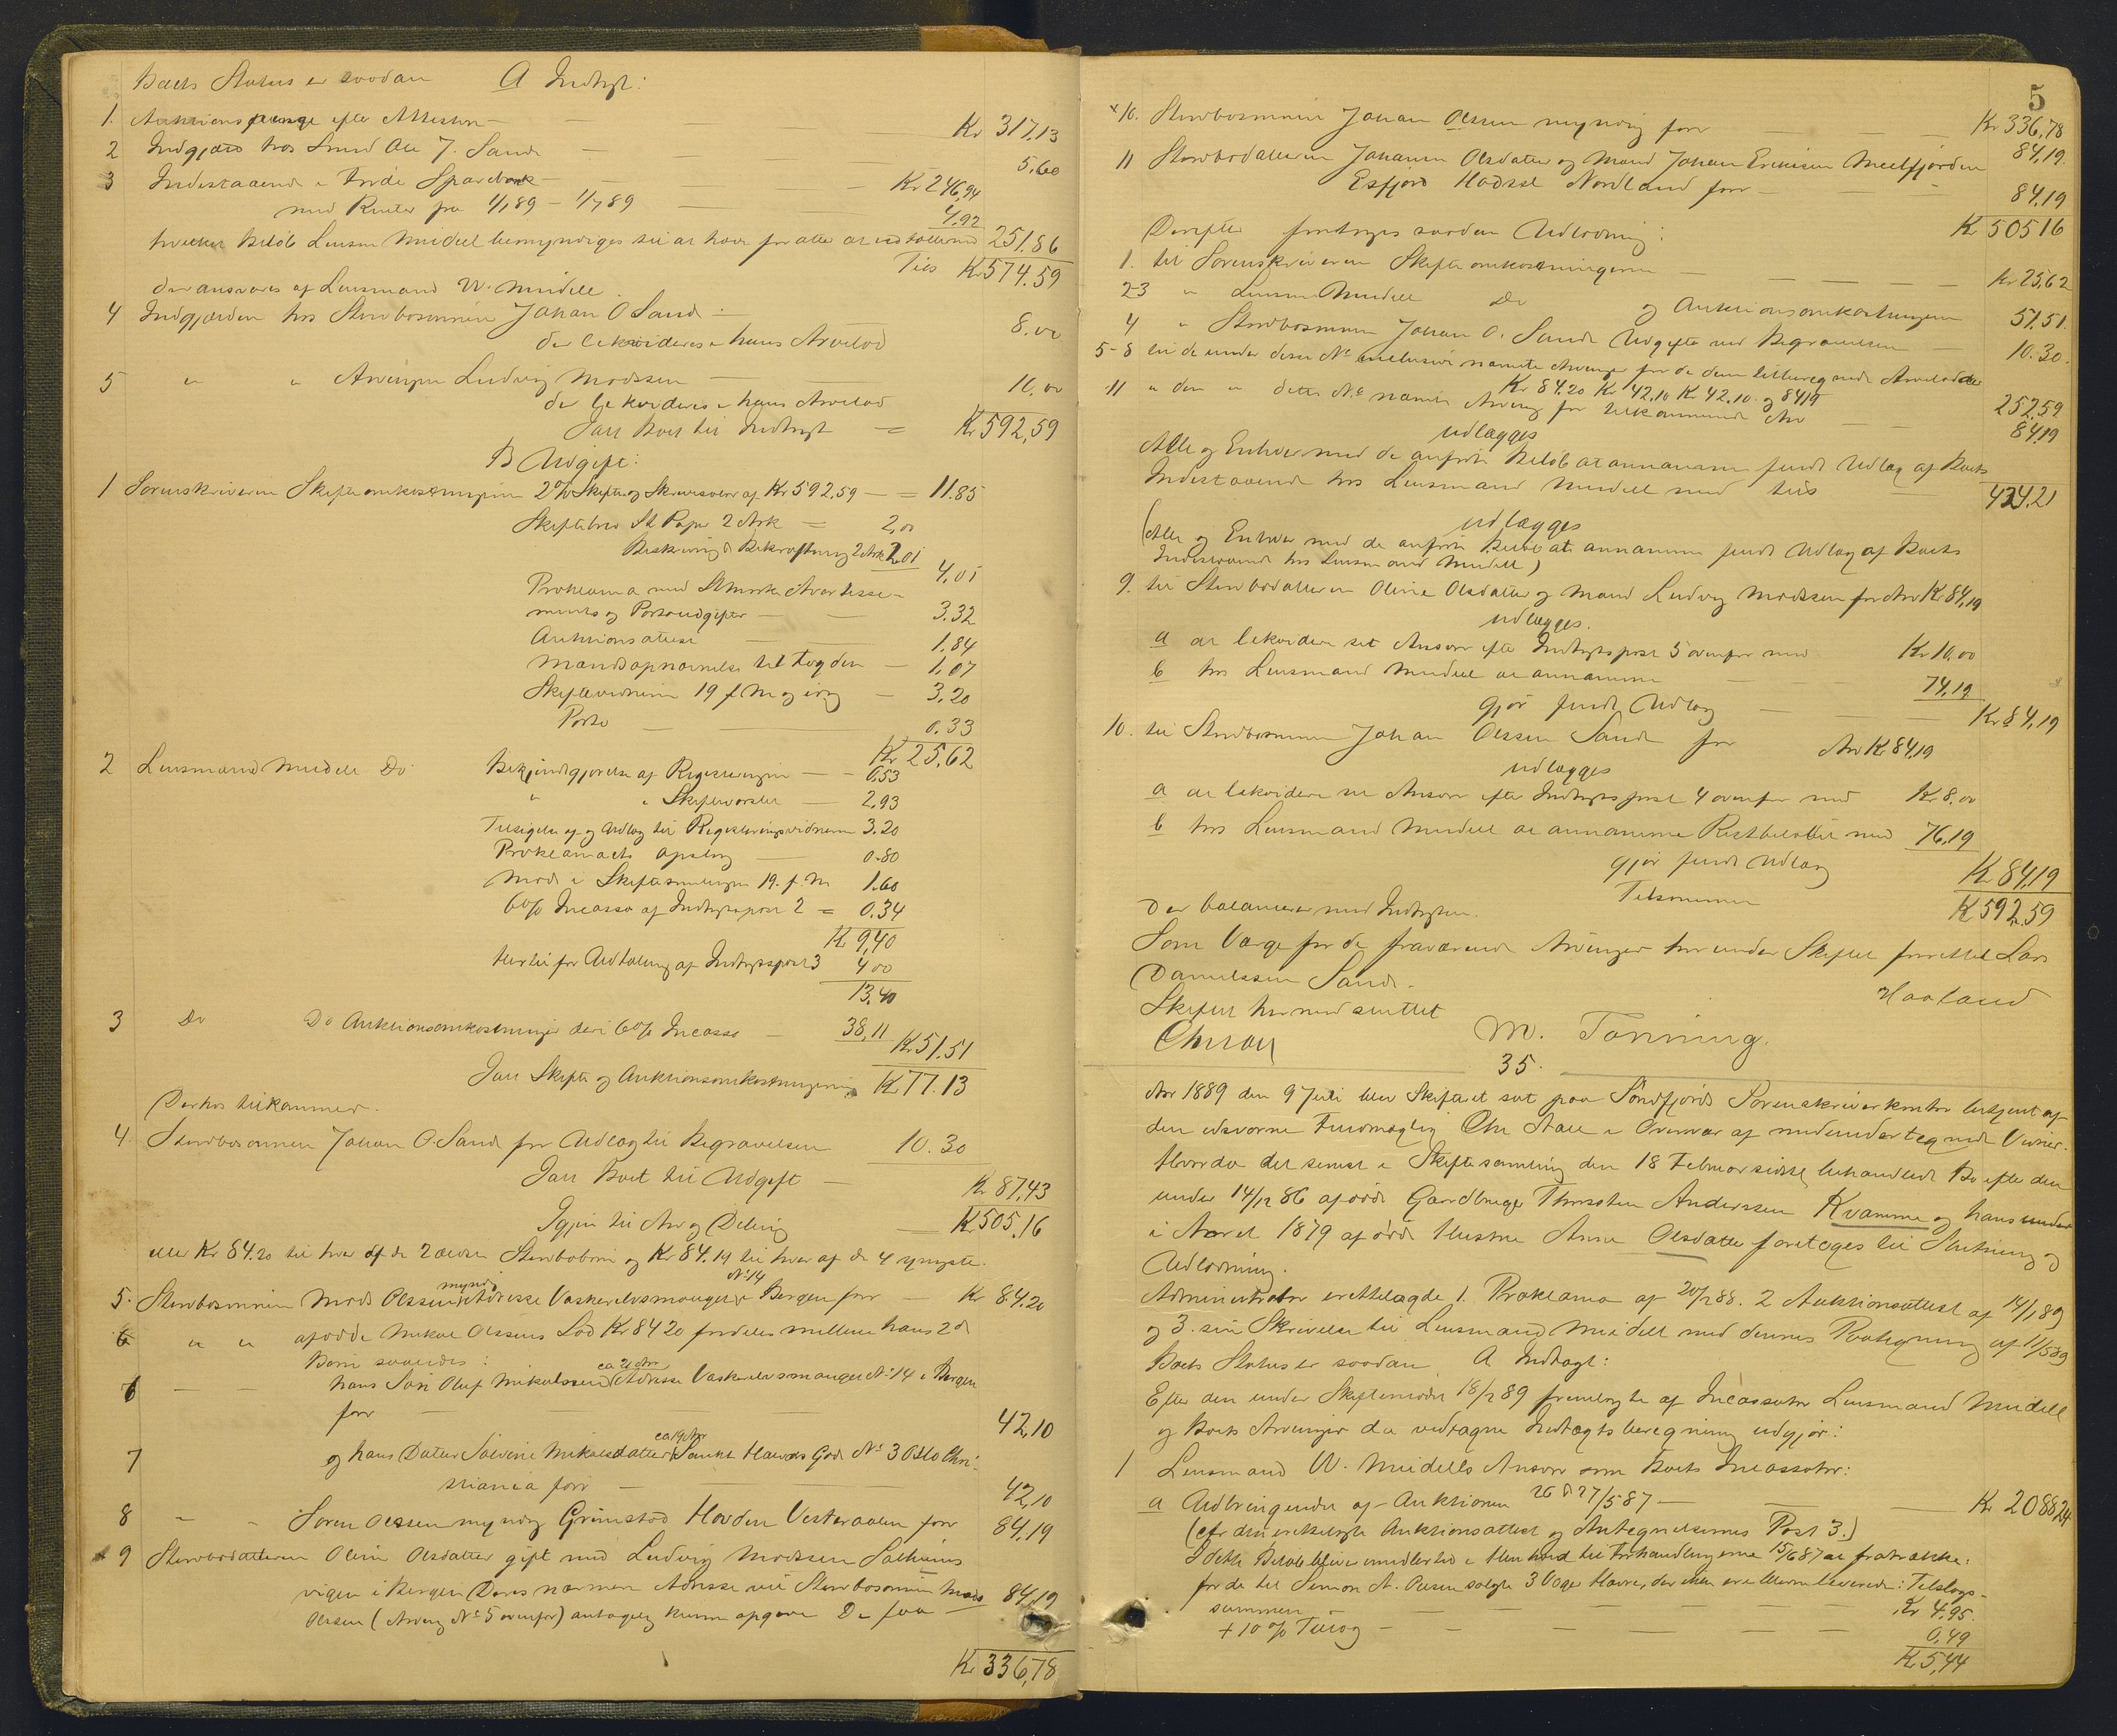 Boets Status er saadan A Indtægt:
1. Auktionspenge efter Attesten — — Kr 317,13
2 Indgjæld hos Smed Ole J. Sande — — 5.60
3 Indestaaende i Førde Sparebank — — Kr 246,94
med Renter fra 1/1 89 – 1/7 89 — 4.92
hvilket Beløb Lensm Meidell bemyndiges til at hæve for atter at udbetale med 251.86
Tils Kr 574.59
der ansvares af Lensmand W. Meidell.
4 Indgjælden hos Stervbosønnen Johan O Sande — 8.00
der likvideres i hans Arvelod
5 " " Arvingen Ludvig Madssen — 10,00
der likvideres i hans Arvelod
Joer Boet til Indtægt = Kr 592,59
B Udgift:
1 Sorenskriveren Skifteomkostningerne 2% Skifte og Skriversalær af Kr 592.59 — = 11.85
Skiftebrev St Papir 2 Ark = 2,00
Beskrivning & Bekræftning 2 Ark 2.01
4,01
Proklama med St.mærke Avertisse-
ments og Portoudgifter — — 3.32
Auktionsattest — — 1.84
Mandsopnævnelse til Fogden — 1,07
Skiftevidnerne 19 f M og idag — 3.20
Porto — — 0.33
Kr 25,62
2 Lensmand Meidell Do Bekjendtgjørelse af Registreringen — 0,53
" " Skiftevarslet — 2.93
Tilsigelse af og Udlæg til Registreringsvidnerne 3.20
Proklamaets Opslag — 0.80
Møde i Skiftesamlingen 19. f. M 1.60
6% Incasso af Indtægtspost 2 = 0.34
Kr 9,40
Hertil for Udbetaling af Indtægtspost 3 4 00
13.40
3 Do Do Auktionsomkostninger deri 6% Incasso — 38,11
Kr 51.51
Joer Skifte og Auktionsomkostningerne Kr 77.13
Derhos tilkommer.
4. Stervbosønnen Johan O. Sande for Udlæg til Begravelsen 10.30
Joer Boet til Udgift — Kr 87,43
Igjen til Arv og Deling — Kr 505,16
eller Kr 84.20 til hver af de 2 ældste Stervbobørn og Kr 84.19 til hver af de 4 yngste.
5. Stervbosønnen Mads Olssen myndig Adresse Vaskerelvsmauget No 14 i Bergen for — Kr 84.20
6 " " afdøde Mikal Olssens Lod Kr 84 20 fordeles mellem hans 2de
Børn saaledes:
6 — — hans Søn Oluf Mikalssen ca 21 Aar Adresse Vaskerelvsmauget No 14 i Bergen
for — — 42,10
7 og hans Datter Salvine Mikalsdatter ca 19 Aar Sankt Halvards Gade No 3 Oslo Chri-
stiania for — 42,10
8 " " Søren Olssen myndig Grimstad Hovden Vesteraalen for 84,19
9 Stervbodatteren Oline Olsdatter gift med Ludvig Madssen Solheims
vigen i Bergen (Deres nærmere Adresse vil Stervbosønnen Mads
Olssen (Arving No 5 ovenfor) antagelig kunne opgive De faa 84,19
Kr 336,78
5
Kr 336,78
10. Stervbosønnen Johan Olssen myndig for — — 84,19.
11 Stervbodatteren Johanne Olsdatter og Mand Johan Eriksen Meelfjorden
Esfjord Hadsel Nordland for — — 84,19
Kr 505 16
Derefter foretoges saadan Udlodning:
1. til Sorenskriveren Skifteomkostningerne — — Kr 25,62
2-3 " Lensm Meidell Do og Auktionsomkostningerne 51,51.
4 " Stervbosønnen Johan O. Sande Udgifter ved Begravelsen — 10.30.
5-8 til de under disse No inclusive nævnte Arvinger for de dem tilberegnede Arvelodder
Kr 84.20 Kr 42,10 Kr 42.10 og 84 19 252,59
11 " den " dette No nævnte Arving for tilkommende Arv — — 84.19
udlægges
Alle og Enhver med de anførte Beløb at annamme fuldt Udlæg af Boets
Indestaaende hos Lensmand Meidell med tils — 424.21
udlægges
(Alle og Enhver med de anførte Beløb at annamme fuldt Udlæg af Boets
Indestaaende hos Lensmand Meidell)
9. til Stervbodatteren Oline Olsdatter og Mand Ludvig Madssen for Arv Kr 84,19
udlægges.
a at likvidere sit Ansvar efter Indtægtspost 5 ovenfor med Kr 10,00
b hos Lensmand Meidell at annamme — 74,19
gjør fuldt Udlæg — — Kr 84,19
10. til Stervbosønnen Johan Olssen Sande for Arv Kr 84,19
udlægges
a at likvidere sit Ansvar efter Indtægtspost 4 ovenfor med Kr 8,00
b hos Lensmand Meidell at annamme Restbeløbet med 76,19
gjør fuldt Udlæg Kr 84,19
Tilsammen Kr 592,59
Der balancerer med Indtægten.
Som Værge for de fraværende Arvinger har under Skiftet forrettet Lars
Danielssen Sande.
Skiftet hermed sluttet Haaland
M. Tonning.
35.
Aar 1889 den 9 Juli blev Skifteret sat paa Søndfjords Sorenskriverkontor betjent af
den edsvorne Fuldmægtig Chr Stall i Overvær af medundertegnede Vidner.
Hvorda det senest i Skiftesamling den 18 Februar sidstl behandlede Bo efter den
under 14/12 86 afdøde Gaardbruger Thorsten Anderssen Kvamme og hans under
i Aaret 1879 afdøde Hustru Anne Olsdatter foretages til Slutning og
Udlodning.
Administrator erettelagde 1. Proklama af 20/12 88. 2 Auktionsattest af 14/1 89
og 3. sin Skrivelse til Lensmand Meidell med dennes Paategning af 11/5 89
Boets Status er saadan A Indtægt:
Efter den under Skiftemødet 18/2 89 fremlagte af Incassator Lensmand Meidell
og Boets Arvinger da vedtagne Indtægtsberegning udgjør:
1 Lensmand W. Meidells Ansvar som Boets Incassator:
a Udbringendet af Auktionen 26 & 27/5 87 — — Kr 2088,24
(cfr den erettelagte Auktionsattest og Antegnelsernes Post 3.)
I dette Beløb bliver imidlertid i Henhold til Forhandlingerne 15/6 87 at fratrække:
for de til Simon A. Olsen solgte 3 Voger Havre, der ikke ere bleven leverede: Tilslags-
summen — — Kr 4,95.
+ 10 % Tillæg — — 0,49
Kr 5,44